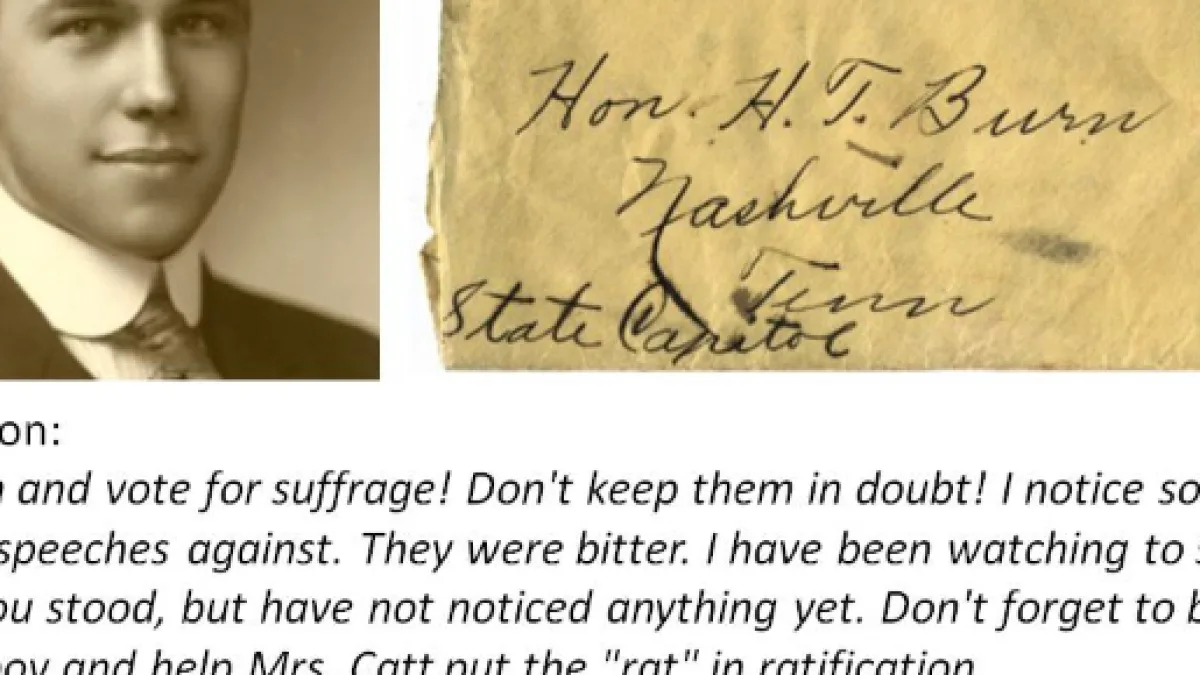 Hon. H. T. Burn
Nashville
Tenn
State Capitol
on:
and vote for suffrage! Don't keep them in doubt! I notice so
speeches against. They were bitter. I have been watching to
ou stood, but have not noticed anything yet. Don't forget to b
boy and help Mrs. Catt put the "rat" in ratification.